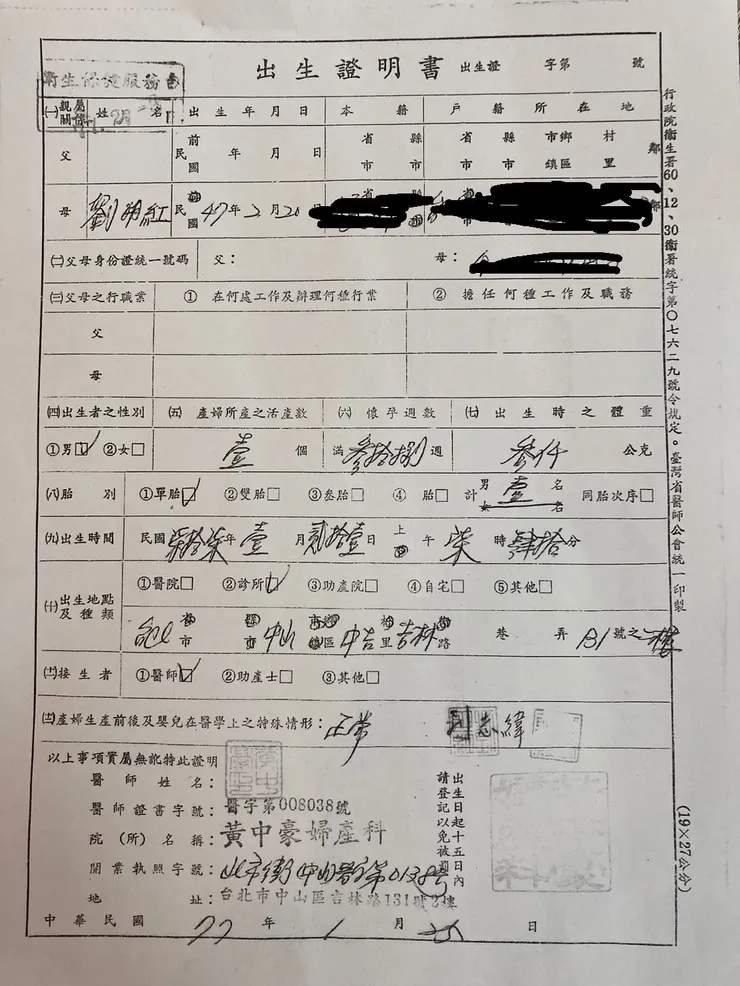 出生證明書 出生證 字第 號
衛生保健服務
㈠親屬關係 姓名 出生年月日 本籍 戶籍所在地
父 民前國 年 月 日 省市 縣市 省市 縣市 市鄉鎮區 村里 鄰
母 劉明紅 民前國 47年2月20 省 縣
㈡父母身份證統一號碼 父: 母:
㈢父母之行職業 ① 在何處工作及辦理何種行業 ② 擔任何種工作及職務
父
母
㈣出生者之性別 ㈤ 產婦所產之活產數 ㈥ 懷孕週數 ㈦ 出生時之體重
①男☑ ②女□ 壹 個 滿叁拾捌週 叁仟 公克
㈧胎別 ①單胎☑ ②雙胎□ ③叁胎□ ④ 胎□ 計 男 壹 名 女 名 同胎次序□
㈨出生時間 民國柒拾柒年壹月貳拾壹日 上下午 柒時肆拾分
㈩出生地點及種類 ①醫院□ ②診所☑ ③助產院□ ④自宅□ ⑤其他□
省市 縣市 中山 市鄉鎮區 中吉 村里 吉林 街路 巷 弄 131號之 樓
㈪接生者 ①醫師☑ ②助產士□ ③其他□
㈫產婦生產前後及嬰兒在醫學上之特殊情形: 正常 志緯
以上事項實屬無訛特此證明
醫師姓名:
醫師證書字號: 醫字第008038號
院(所)名稱: 黃中豪婦產科
開業執照字號: 北市衛中山醫字第
地址: 台北市中山區吉林路131號2樓
出生日起十五日內
請登記以免被罰
中華民國 77 年 1 月 25 日
行政院衛生署60、12、30衛署統字第〇七六二九號令規定。臺灣省醫師公會統一印製
(19×27公分)